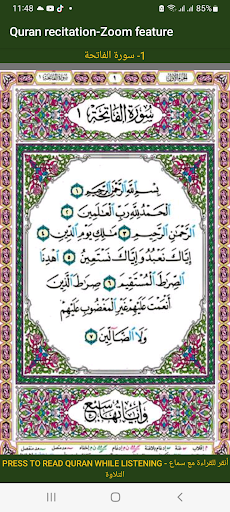 11:48 85%
Quran recitation-Zoom feature
1- سورة الفاتحة
سُورَةُ الفَاتِحَةِ ١
بِسْمِ اللَّهِ الرَّحْمَٰنِ الرَّحِيمِ ١
الْحَمْدُ لِلَّهِ رَبِّ الْعَالَمِينَ ٢
الرَّحْمَٰنِ الرَّحِيمِ ٣ مَٰلِكِ يَوْمِ الدِّينِ ٤
إِيَّاكَ نَعْبُدُ وَإِيَّاكَ نَسْتَعِينُ ٥ اهْدِنَا
الصِّرَٰطَ الْمُسْتَقِيمَ ٦ صِرَٰطَ الَّذِينَ
أَنْعَمْتَ عَلَيْهِمْ غَيْرِ الْمَغْضُوبِ عَلَيْهِمْ
وَلَا الضَّالِّينَ ٧
وَآيَاتُهَا سَبْعٌ
PRESS TO READ QURAN WHILE LISTENING - أنقر للقراءة مع سماع
التلاوة